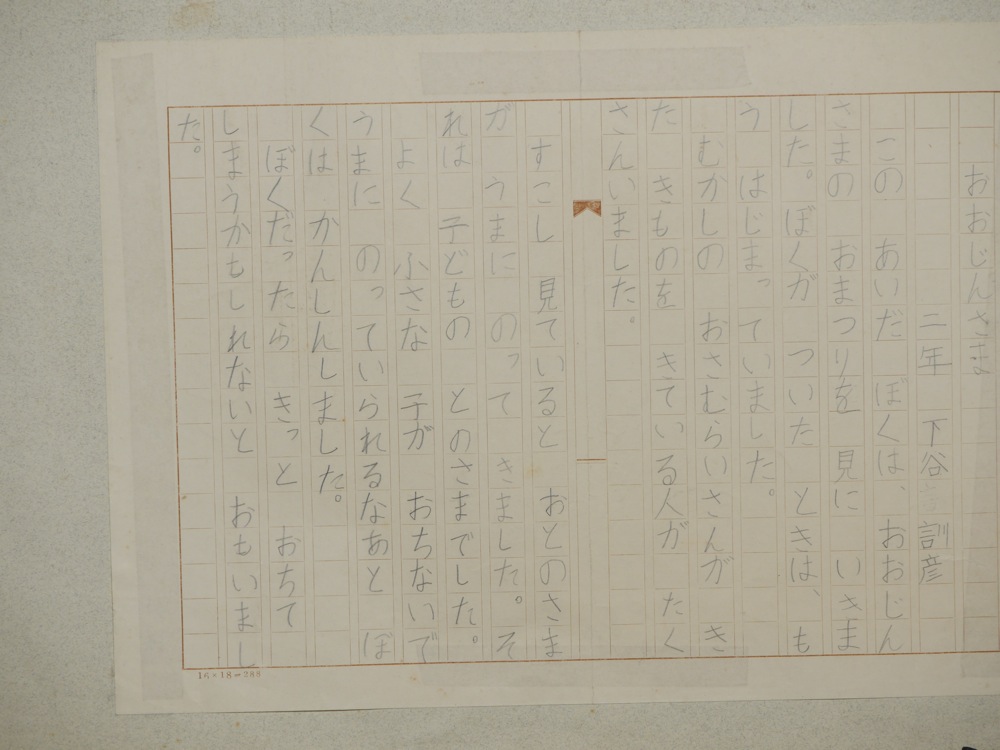 おおじんさま
二年 下谷 訓彦
この あいだ ぼくは、おおじん
さまの おまつりを 見に いきま
した。ぼくが ついた ときは、も
う はじまっていました。
むかしの おさむらいさんが き
た きものを きている人が たく
さんいました。
すこし 見ていると おとのさま
が うまに のって きました。そ
れは 子どもの とのさまでした。
よく ふさな 子が おちないで
うまに のっていられるなあと ぼ
くは かんしんしました。
ぼくだったら きっと おちて
しまうかもしれないと おもいまし
た。
16×18=288